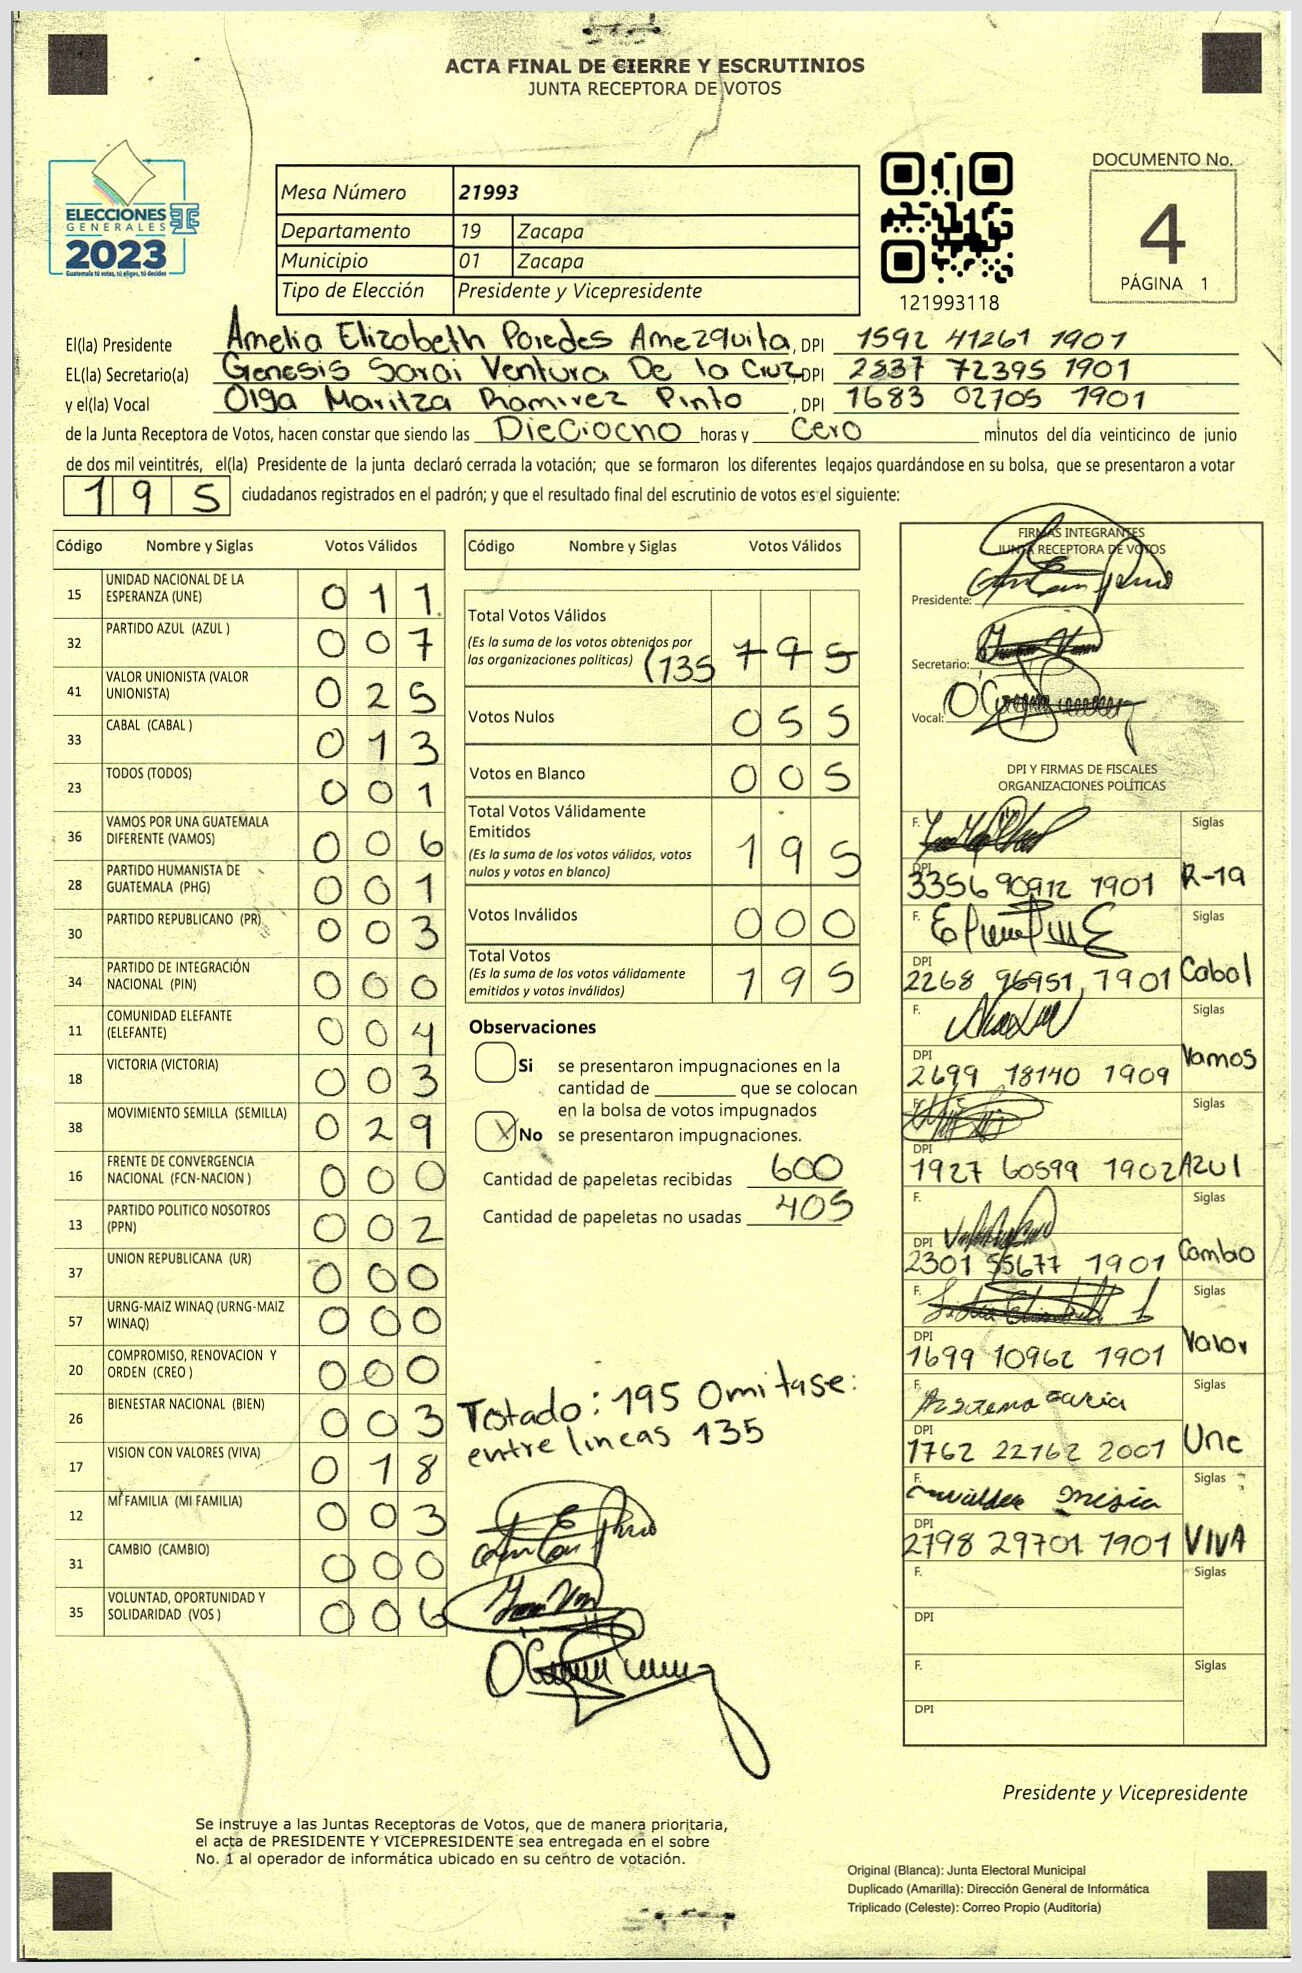 ACTA FINAL DE CIERRE Y ESCRUTINIOS
JUNTA RECEPTORA DE VOTOS
ELECCIONES
GENERALES
2023
Guatemala tú votas, tú eliges, tú decides
Mesa Número 21993
Departamento 19 Zacapa
Municipio 01 Zacapa
Tipo de Elección Presidente y Vicepresidente
121993118
DOCUMENTO No.
4
PÁGINA 1
El(la) Presidente Amelia Elizabeth Paredes Amezquita, DPI 1592 41261 1901
EL(la) Secretario(a) Genesis Sarai Ventura De la Cruz, DPI 2537 72395 1901
y el(la) Vocal Olga Maritza Ramirez Pinto, DPI 1683 02705 1901
de la Junta Receptora de Votos, hacen constar que siendo las Dieciocho horas y Cero minutos del día veinticinco de junio
de dos mil veintitrés, el(la) Presidente de la junta declaró cerrada la votación; que se formaron los diferentes legajos guardándose en su bolsa, que se presentaron a votar
195 ciudadanos registrados en el padrón; y que el resultado final del escrutinio de votos es el siguiente:
Código Nombre y Siglas Votos Válidos
15 UNIDAD NACIONAL DE LA ESPERANZA (UNE) 011
32 PARTIDO AZUL (AZUL ) 007
41 VALOR UNIONISTA (VALOR UNIONISTA) 025
33 CABAL (CABAL ) 013
23 TODOS (TODOS) 001
36 VAMOS POR UNA GUATEMALA DIFERENTE (VAMOS) 006
28 PARTIDO HUMANISTA DE GUATEMALA (PHG) 001
30 PARTIDO REPUBLICANO (PR) 003
34 PARTIDO DE INTEGRACIÓN NACIONAL (PIN) 000
11 COMUNIDAD ELEFANTE (ELEFANTE) 004
18 VICTORIA (VICTORIA) 003
38 MOVIMIENTO SEMILLA (SEMILLA) 029
16 FRENTE DE CONVERGENCIA NACIONAL (FCN-NACION ) 000
13 PARTIDO POLITICO NOSOTROS (PPN) 002
37 UNION REPUBLICANA (UR) 000
57 URNG-MAIZ WINAQ (URNG-MAIZ WINAQ) 000
20 COMPROMISO, RENOVACION Y ORDEN (CREO ) 000
26 BIENESTAR NACIONAL (BIEN) 003
17 VISION CON VALORES (VIVA) 018
12 MI FAMILIA (MI FAMILIA) 003
31 CAMBIO (CAMBIO) 000
35 VOLUNTAD, OPORTUNIDAD Y SOLIDARIDAD (VOS ) 006
Código Nombre y Siglas Votos Válidos
Total Votos Válidos
(Es la suma de los votos obtenidos por
las organizaciones políticas) (135 195
Votos Nulos 055
Votos en Blanco 005
Total Votos Válidamente
Emitidos
(Es la suma de los votos válidos, votos
nulos y votos en blanco) 195
Votos Inválidos 000
Total Votos
(Es la suma de los votos válidamente
emitidos y votos inválidos) 195
Observaciones
Si se presentaron impugnaciones en la
cantidad de ________ que se colocan
en la bolsa de votos impugnados
X No se presentaron impugnaciones.
Cantidad de papeletas recibidas 600
Cantidad de papeletas no usadas 405
Testado: 195 Omitase:
entre lineas 135
FIRMAS INTEGRANTES
JUNTA RECEPTORA DE VOTOS
Presidente:
Secretario:
Vocal:
DPI Y FIRMAS DE FISCALES
ORGANIZACIONES POLÍTICAS
F. Siglas
DPI
3356 90912 1901 R-19
F. Siglas
DPI
2268 96951 1901 Cabal
F. Siglas
DPI
2699 18140 1909 Vamos
F. Siglas
DPI
1927 60599 1902 AZUl
F. Siglas
DPI
2301 55677 1901 Cambio
F. Siglas
DPI
1699 10962 1901 Valor
F. Siglas
DPI
1762 22162 2001 Une
F. Siglas
DPI
2798 29701 1901 VIVA
F. Siglas
DPI
F. Siglas
DPI
Presidente y Vicepresidente
Se instruye a las Juntas Receptoras de Votos, que de manera prioritaria,
el acta de PRESIDENTE Y VICEPRESIDENTE sea entregada en el sobre
No. 1 al operador de informática ubicado en su centro de votación.
Original (Blanca): Junta Electoral Municipal
Duplicado (Amarilla): Dirección General de Informática
Triplicado (Celeste): Correo Propio (Auditoría)